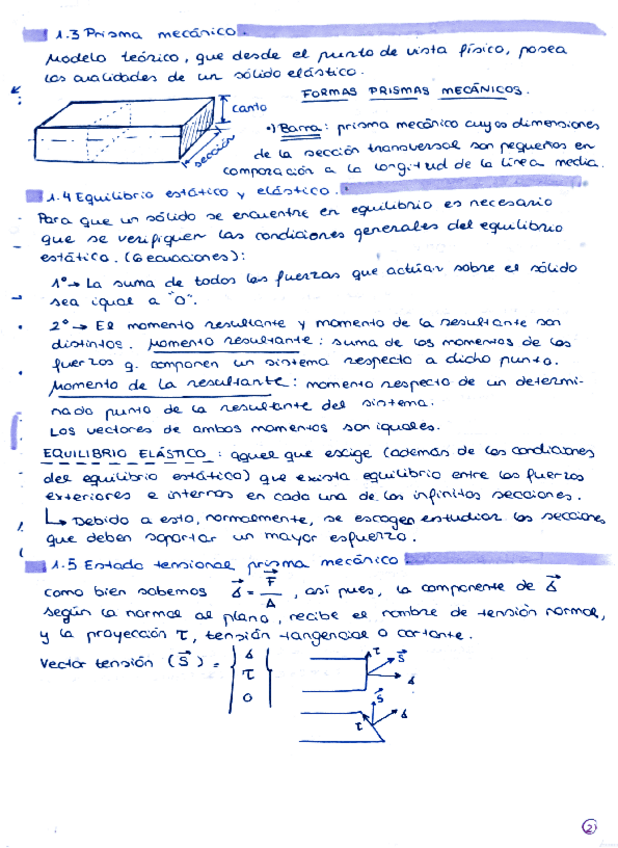 1.3 Prisma mecánico.
Modelo teórico, que desde el punto de vista físico, posea
las cualidades de un sólido elástico.
FORMAS PRISMAS MECÁNICOS.
canto
sección
•) Barra: prisma mecánico cuyos dimensiones
de la sección transversal son pequeños en
comparación a la longitud de la línea media.
1.4 Equilibrio estático y elástico.
Para que un sólido se encuentre en equilibrio es necesario
que se verifiquen las condiciones generales del equilibrio
estático. (6 ecuaciones):
1º→ La suma de todos las fuerzas que actúan sobre el sólido
sea igual a "0".
2º → El momento resultante y momento de la resultante son
distintos. Momento resultante: suma de los momentos de las
fuerzas q. componen un sistema respecto a dicho punto.
Momento de la resultante: momento respecto de un determi-
nado punto de la resultante del sistema.
Los vectores de ambos momentos son iguales.
EQUILIBRIO ELÁSTICO: aquel que exige (además de las condiciones
del equilibrio estático) que exista equilibrio entre las fuerzas
exteriores e internas en cada una de las infinitas secciones.
↳ Debido a esto, normalmente, se escogen estudiar las secciones
que deben soportar un mayor esfuerzo.
1.5 Estado tensional prisma mecánico
como bien sabemos σ = F/A, así pues, la componente de σ
según la normal al plano, recibe el nombre de tensión normal,
y la proyección τ, tensión tangencial o cortante.
Vector tensión (S) = { σ τ 0 }
τ S σ
S σ τ
2